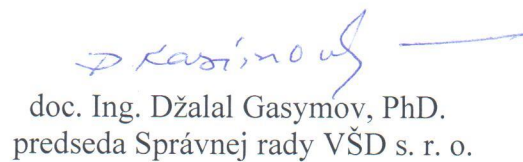 doc. Ing. Džalal Gasymov, PhD.
predseda Správnej rady VŠD s. r. o.